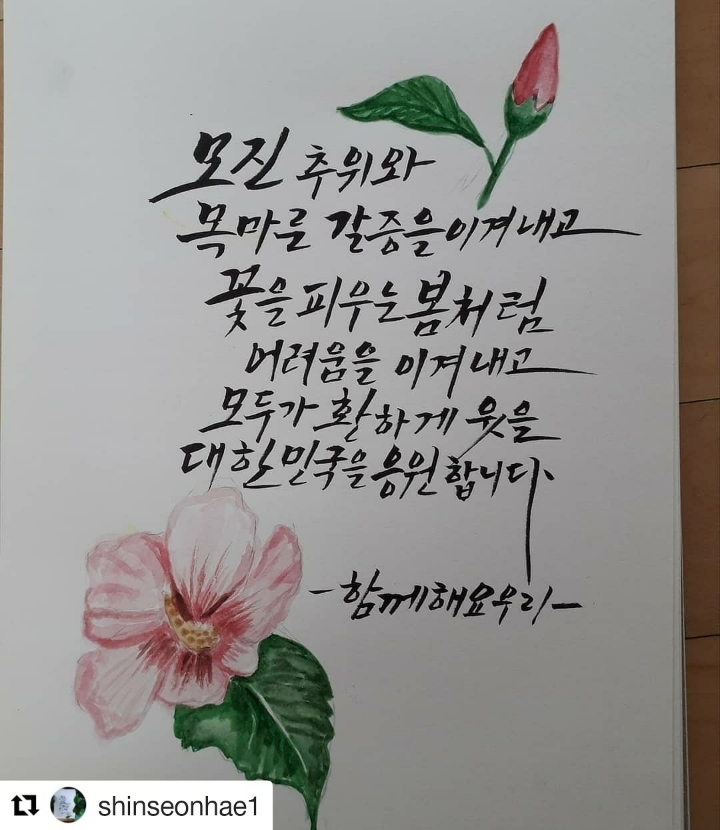 모진 추위와
목마른 갈증을 이겨내고
꽃을 피우는 봄처럼
어려움을 이겨내고
모두가 환하게 웃을
대한민국을 응원합니다.
-함께해요우리-
shinseonhae1